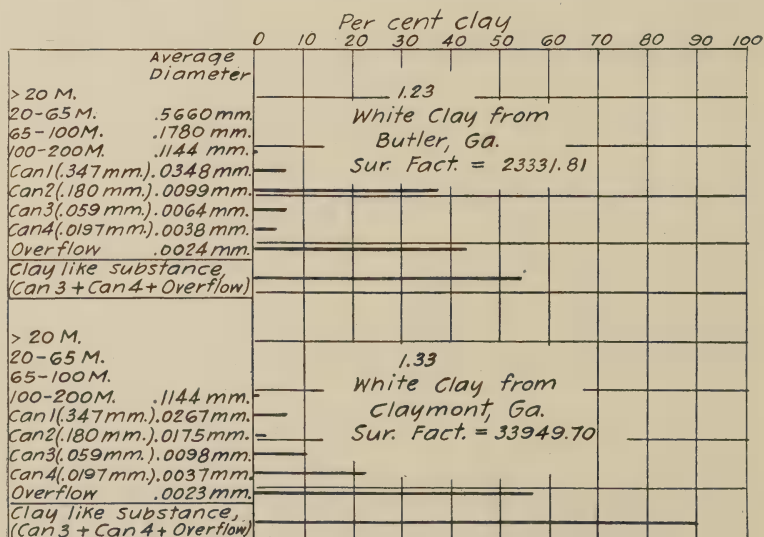 Per cent clay
0 10 20 30 40 50 60 70 80 90 100
Average
Diameter
> 20 M.
20-65 M. .5660 mm.
65-100 M. .1780 mm.
100-200 M. .1144 mm.
Can1(.347 mm.) .0348 mm.
Can2(.180 mm.) .0099 mm.
Can3(.059 mm.) .0064 mm.
Can4(.0197 mm.) .0038 mm.
Overflow .0024 mm.
Clay like substance,
(Can 3 + Can 4 + Overflow)
1.23
White Clay from
Butler, Ga.
Sur. Fact. = 23331.81
> 20 M.
20-65 M.
65-100 M.
100-200 M. .1144 mm.
Can1(.347 mm.) .0267 mm.
Can2(.180 mm.) .0175 mm.
Can3(.059 mm.) .0098 mm.
Can4(.0197 mm.) .0037 mm.
Overflow .0023 mm.
Clay like substance,
(Can 3 + Can 4 + Overflow)
1.33
White Clay from
Claymont, Ga.
Sur. Fact. = 33949.70